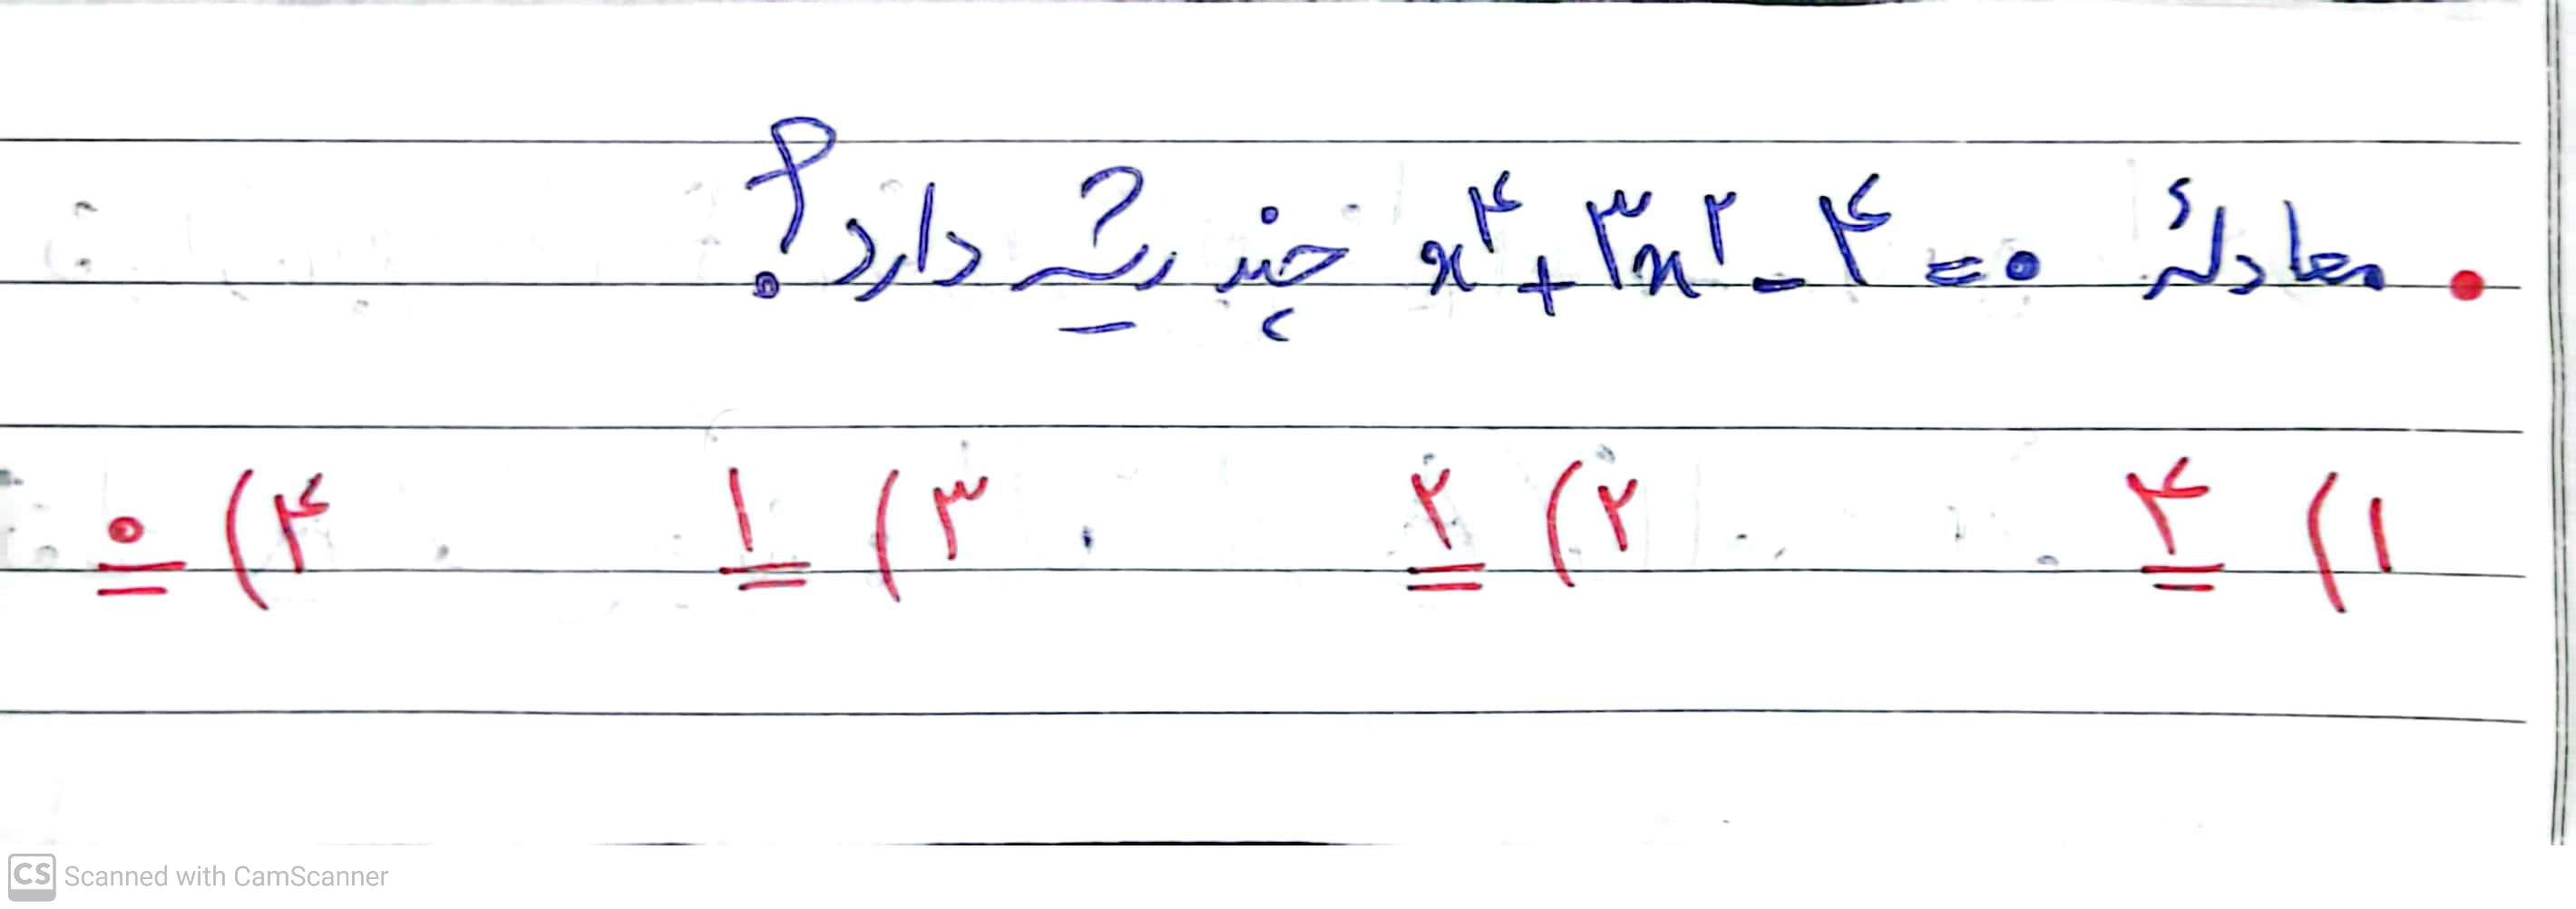 • معادلهٔ x^۴ + ۳x^۲ - ۴ = ۰ چند ریشه دارد؟
۱) ۴ ۲) ۲ ۳) ۱ ۴) ۰
CS Scanned with CamScanner